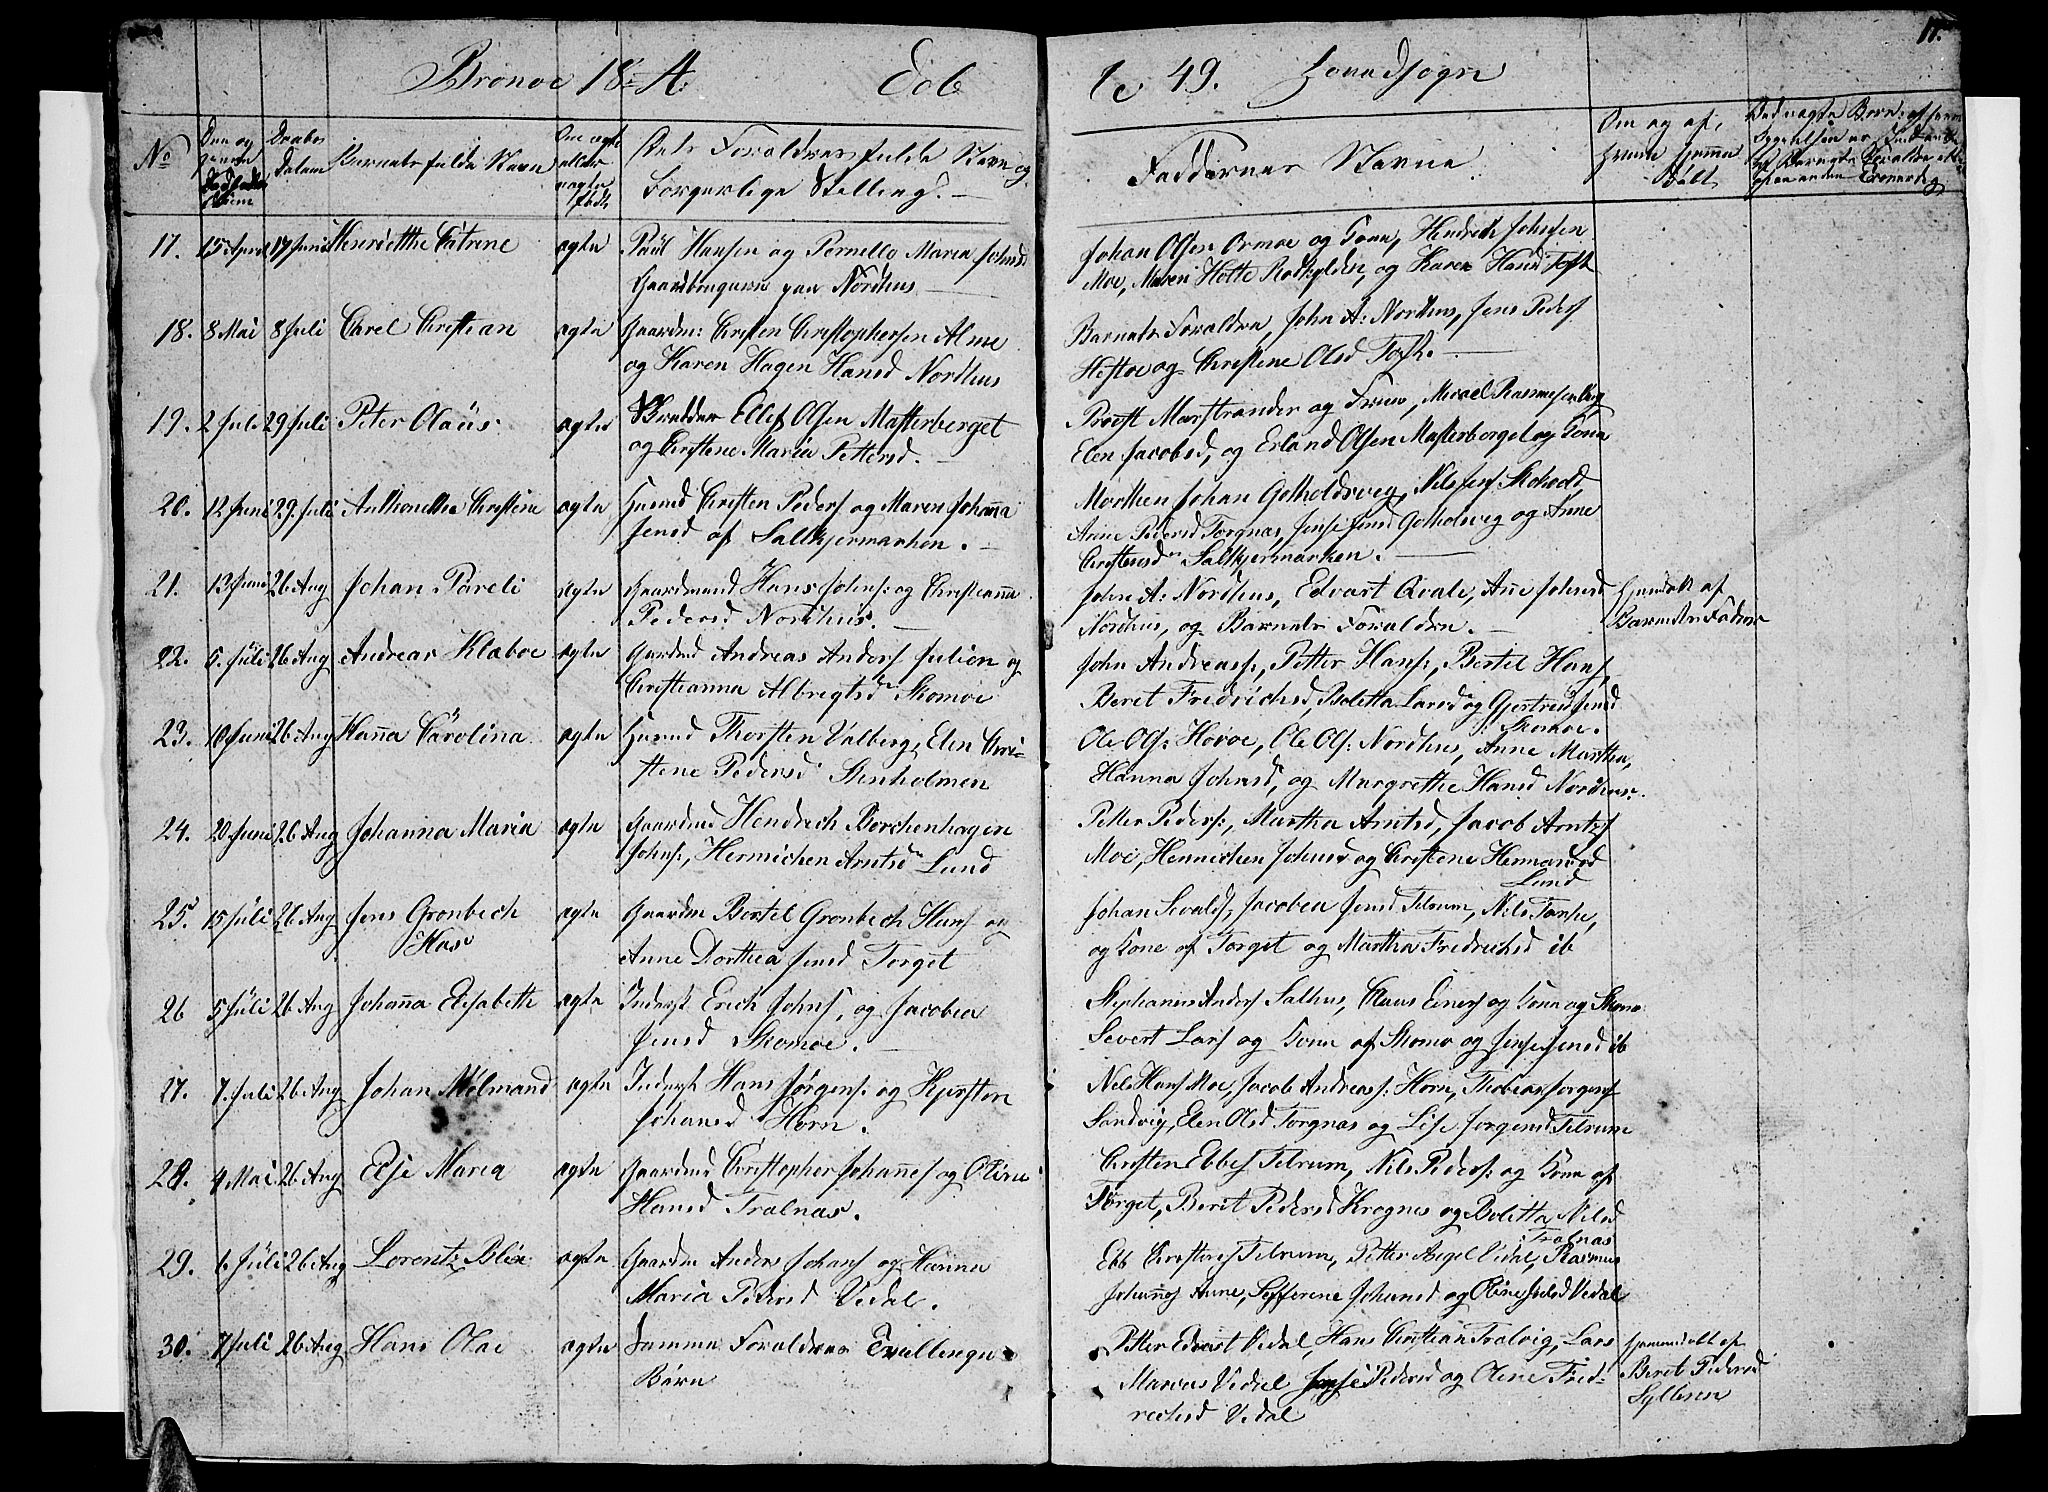 17.
Brønøe 18 A: Døb
te 49. Hovedsogn
No
Daabs
Datum
Barnets fulde Navn
Om ægte
eller
uægte
født
Dets Forældres fulde Navn og
borgerlige Stilling. —
Faddernes Navne
Om og af
hvem hjemme
døbt
17. 15 April 17 Juni Henriette Catrine ægte Paül Hansen og Pernello Maren Johnsd
Gaardbrugere paa Nordhus —
Johan Olsen Ormøe og Kone, Hendrich Johnsen
Moe, Maren Hotte Rodkylden, og Karen Hansd Toft
18. 8 Mai 8 Juli Carel Christian ægte Gaardm: Christen Christophersen Alme
og Karen Hagen Hansd Nordhus
Barnets Forældre, John A: Nordhus, Jens Peders
Hestøe og Christene Olsd Toft. —
19. 2 Juli 29 Juli Peter Olaüs ægte Ellef Olsen Masterberget
og Christene Maria Pettersd. —
Provst Marstrander og Frue, Micael Rasmussen
Elen Jacobsd, og Erland Olsen Masterberget og Kone
20. 12 Juni 29. Juli Anthonetha Christine ægte Husmd Christen Peders og Maren Johanna
Jensd af Salhusmarken. —
Morthen Johan Gotholdsveg, Nils Jens:
Anne Pedersd Torgnæs, Jense Jensd Gotholsveg og Anne
Christensd Salhusmarken. —
21. 13 Juni 26 Aug Johan Pareli ægte Gaardmand Hans Johns: og Christianna
Pedersd Nordhus. —
John A: Nordhus, Edvart Qvale, Ane Johnsd
Nordhus, og Barnets Forældre. —
Hjemdøbt af
Barnets Fader
22. 5. Juli 26 Aug Andreas Klæboe ægte Gardmd Andreas Anders Julien og
Christianna Albregtsd Skomoe
John Andreass:, Petter Hans:, Bertel Hans,
Beret Fredrichsd, Boletta Larsd og Gjertrud Jensd
Skomoe.
23. 10 Juni 26 Aug Hanna Carolina ægte Husmd Thorsten Valberg, Elen Chri-
stene Pedersd Stenholmen
Ole Ols: Horoe, Ole Ols: Nordhus, Anne Martha,
Hanna Johnsd, og Margrethe Hansd Nordhus.
24. 20 Juni 26 Aug Johanna Maria ægte Gaardmd Hendrich Borchenhagen
Johns:, Hermichen Arntsd Lund
Petter Peders:, Martha Arntsd, Jacob Arntz
Moe, Hennichen Johnsd og Christene Hermansd
Lund
25. 15 Juli 26 Aug Jens Gronbech
Has
ægte Gaardm Bertel Gronbech Hans og
Anne Dorthea Jensd Torget
Johan Sevalds, Jacobea Jensd Tilrum, Nils Tønse,
og Kone af Torget og Martha Fredrichsd ib
26 5 Juli 26 Aug Johanna Elisabeth ægte Inderst Erich Johns, og Jacobea
Jensd Skomoe. —
Stephanus Anders Salhus, Claus Einers og Kone og Skomo
Severt Lars og Kone af Skomo og Jense Jensd ib
27. 7. Juli 26 Aug Johan Mélmand ægte Inderst Hans Jørgens: og Kjersten
Johansd Horn.
Nils Hans Moe, Jacob Andreass: Horn, Thobias Jorgens
Sandvig, Elen Olsd Torgnæs og Lise Jorgensd Tilrum
28. 4 Mai 26 Aug Else Maria ægte Gaardmd Christopher Johannes og Oline
Hansd Trælnæs.
Christen Ebbes Tilrum, Nils Peders: og Kone af
Torget, Berit Pedersd Krognes og Boletta Nilsd
Trælnæs
29. 1. Juli 26 Aug Lorentz Blix ægte Gaardm Anders Johans og Hanna
Maria Pedersd Vedal.
Ebb Christens Tilrum, Petter Angel Vedal, Rasmus
Johannes Anne, Sefferene Johansd og Oline Vedal
30. 7 Juli 26 Aug Hans Olai ægte Samme Forældres Tvillinge
Børn
Petter Edvart Vedal, Hans Christian Trælvig, Lars
Marcus Vedal Jensie Pedersd og Olene Fred-
rechsd Vedal
Hjemmedøbt af
Beret Pedersd
Sylteren